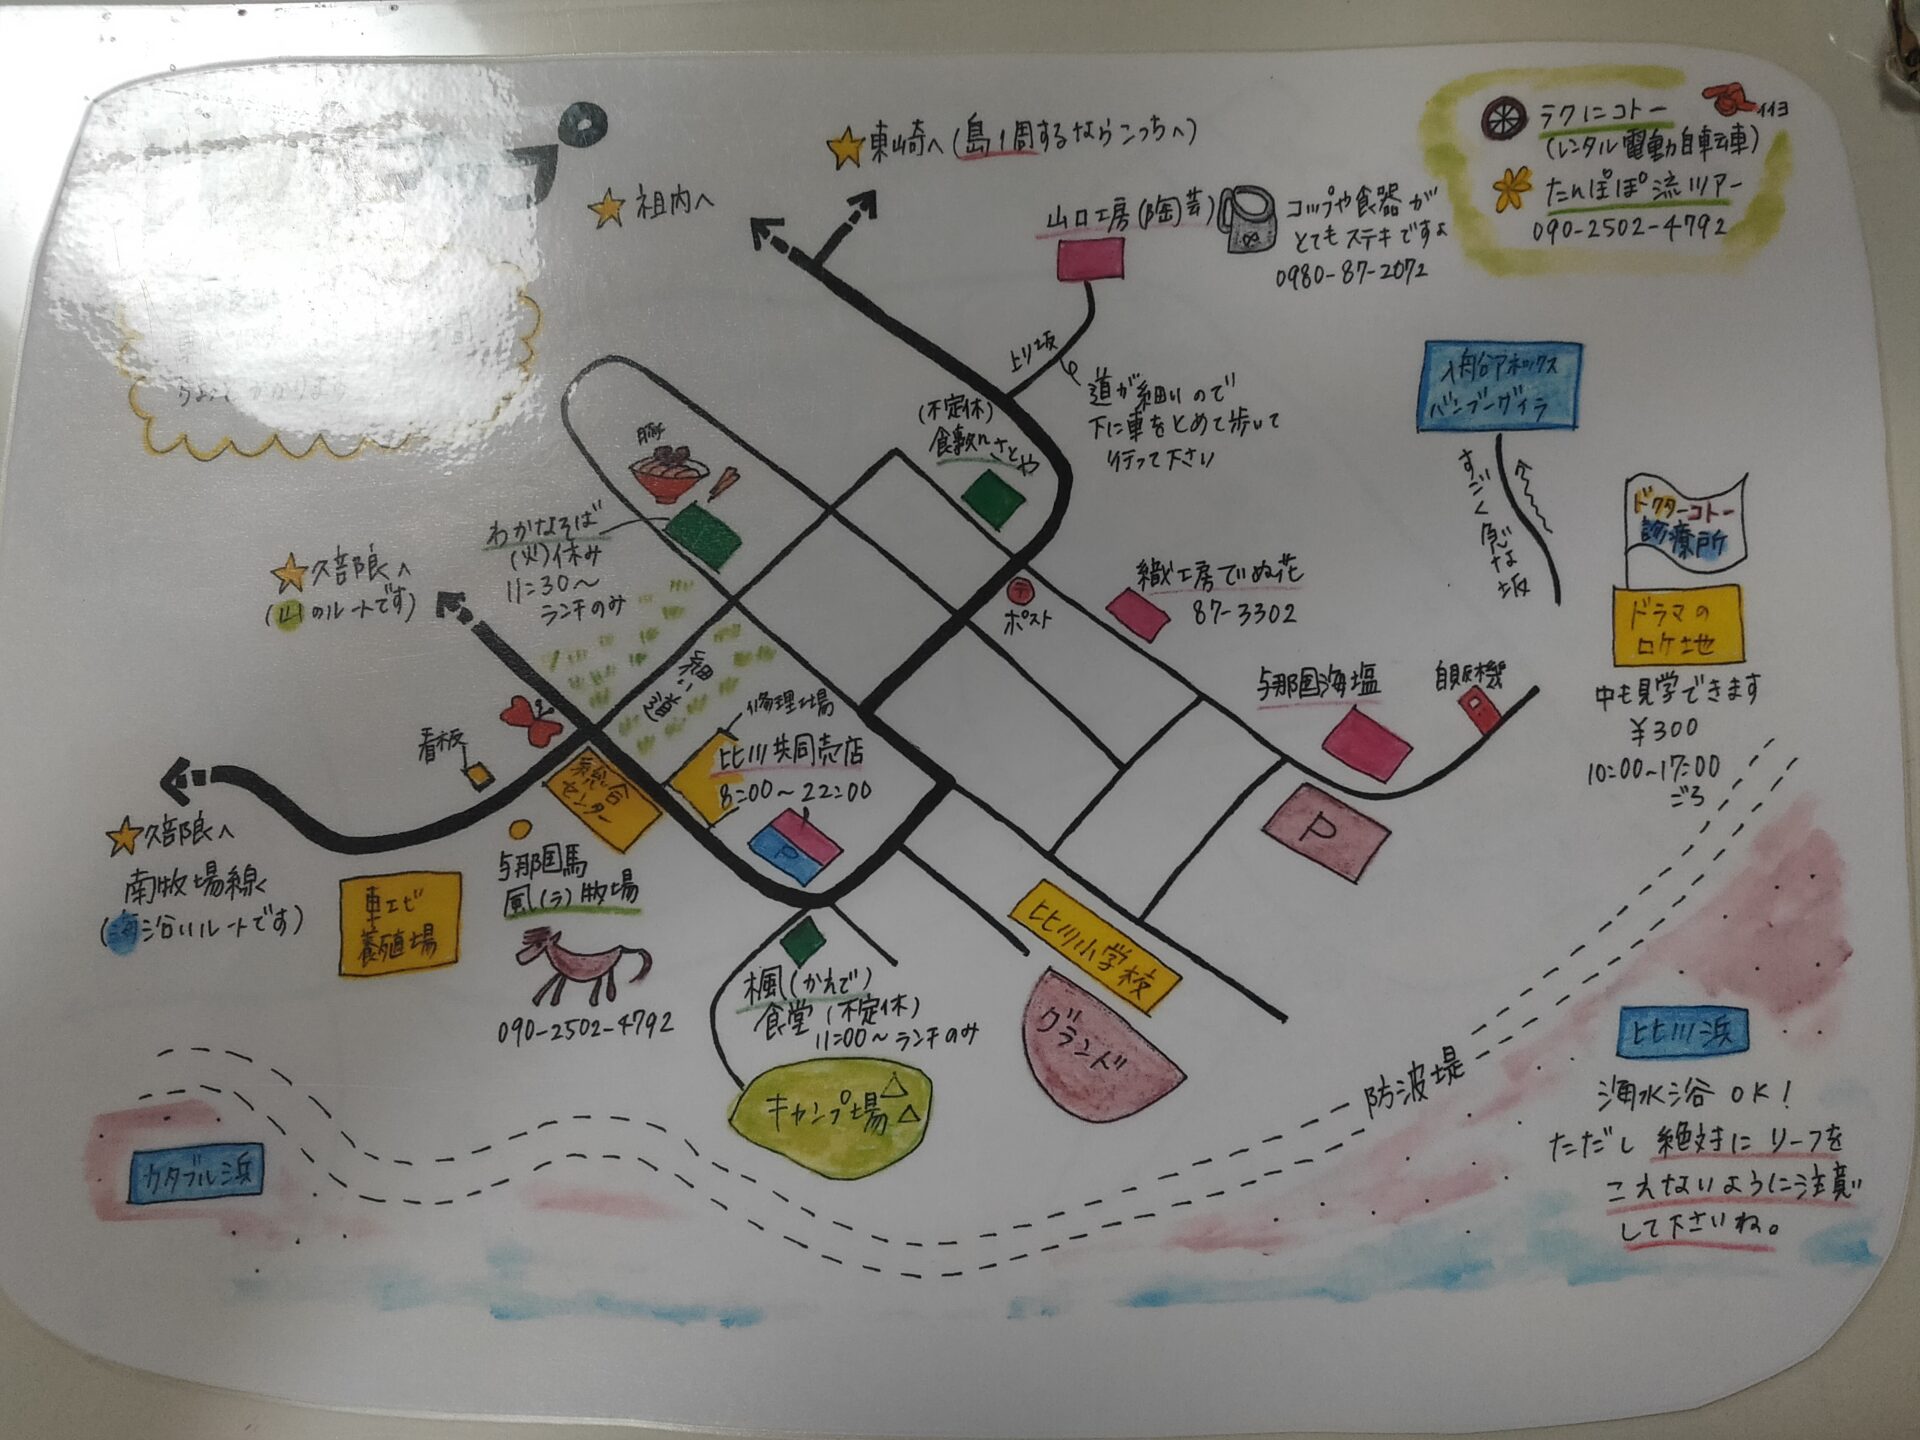 ちょっとかかります
祖内へ
東崎へ(島1周するならこっちへ)
山口工房(陶芸)
コップや食器が
とてもステキですよ
0980-87-2072
ラクにコトー
(レンタル電動自転車)
たんぽぽ流ツアー
090-2502-4792
上り坂
道が細いので
下に車をとめて歩いて
行って下さい
(不定休)
食事処さとや
わかなそば
(火)休み
11:30〜
ランチのみ
久部良へ
(山のルートです)
細い道
ポスト
織工房てぬ花
87-3302
入船谷アネックス
バンブーヴィラ
すごく急な坂
ドクターコトー
診療所
ドラマの
ロケ地
中も見学できます
¥300
10:00~17:00
ごろ
与那国海塩
自販機
P
看板
修理工場
比川共同売店
8:00〜22:00
P
総合
センター
久部良へ
南牧場線
(海沿いルートです)
車エビ
養殖場
与那国馬
風(う)牧場
090-2502-4792
楓(かえで)
食堂(不定休)
11:00〜ランチのみ
キャンプ場
比川小学校
グランド
防波堤
カタブル浜
比川浜
海水浴OK!
ただし絶対にリーフを
こえないように注意
して下さいね。